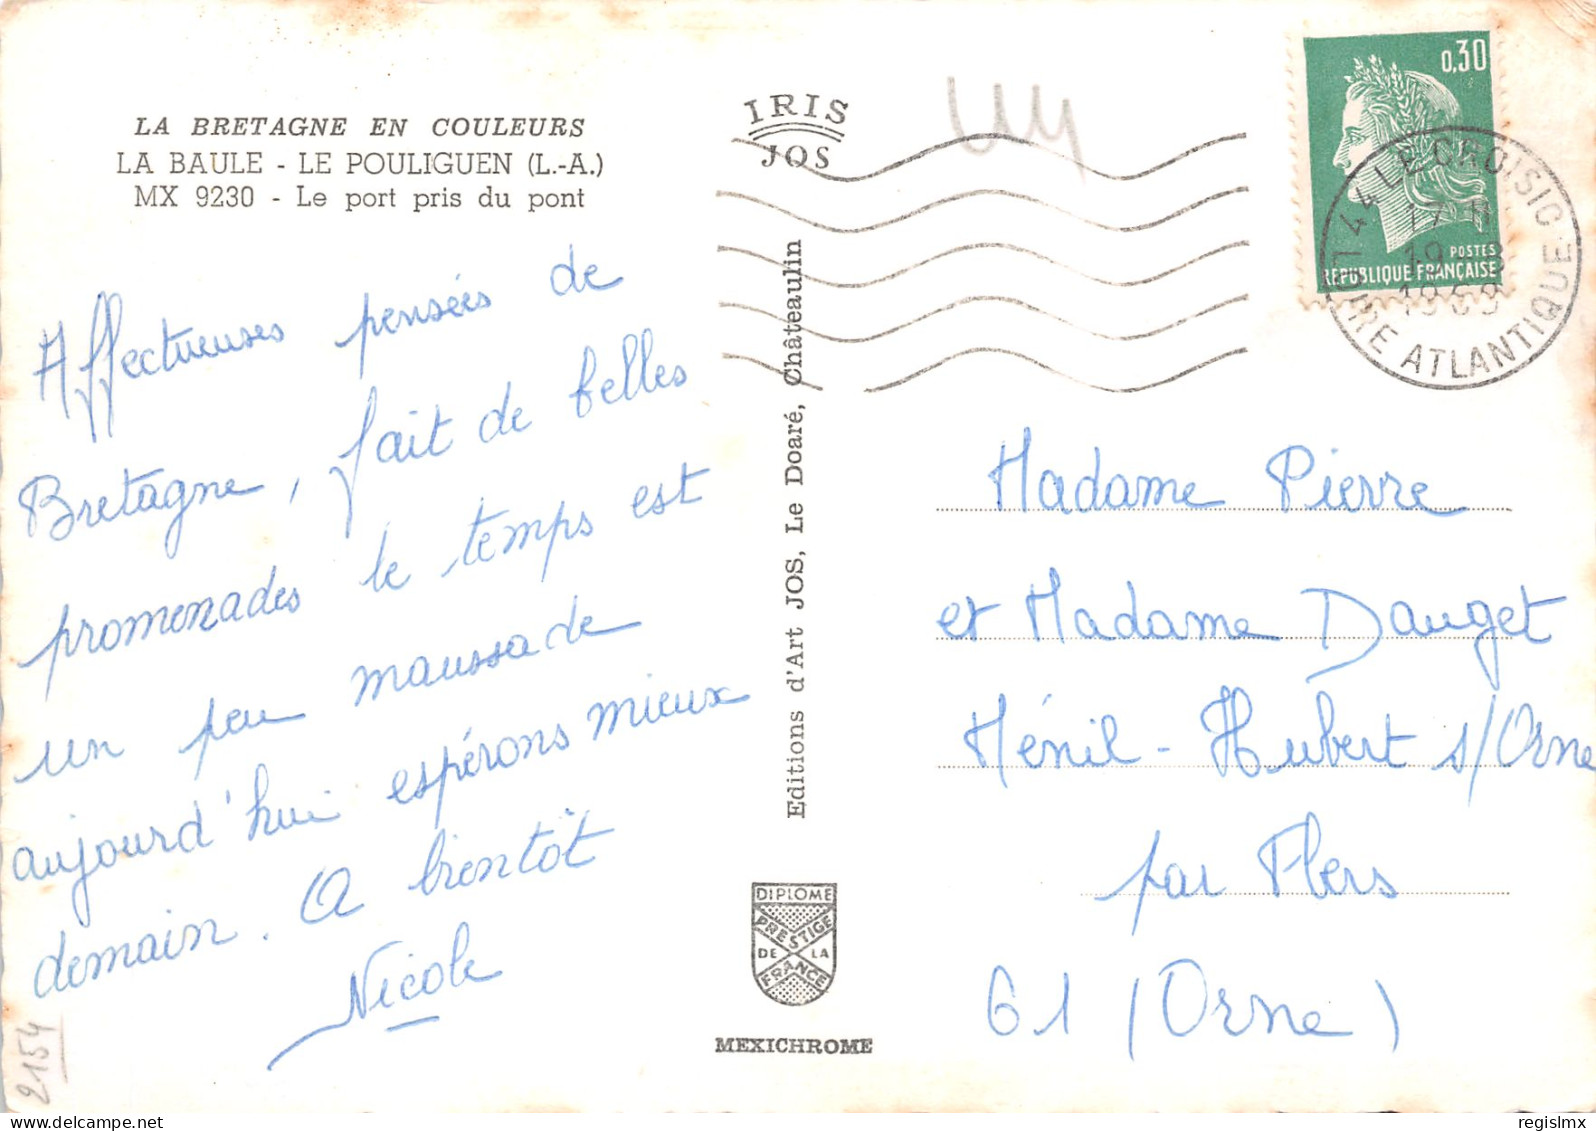 LA BRETAGNE EN COULEURS
LA BAULE - LE POULIGUEN (L.-A.)
MX 9230 - Le port pris du pont
Affectueuses pensées de
Bretagne, fait de belles
promenades le temps est
un peu maussade
aujourd'hui espérons mieux
demain. A bientôt
Nicole
2154
IRIS
JOS
Editions d'Art JOS, Le Doaré, Châteaulin
DIPLOME
PRESTIGE
DE LA
FRANCE
MEXICHROME
44
0,30
POSTES
REPUBLIQUE FRANÇAISE
44 LE CROISIC
17 H
19 - 8
1969
LOIRE ATLANTIQUE
Madame Pierre
et Madame Dauget
Ménil - Hubert s/Orne
par Flers
61 (Orne)
regislmx